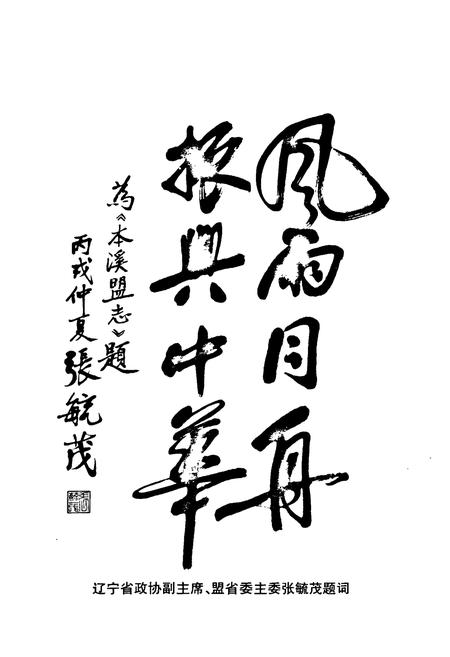 风雨同舟
振興中華
為《本溪盟志》題
丙戌仲夏 張毓茂
辽宁省政协副主席、盟省委主委张毓茂题词